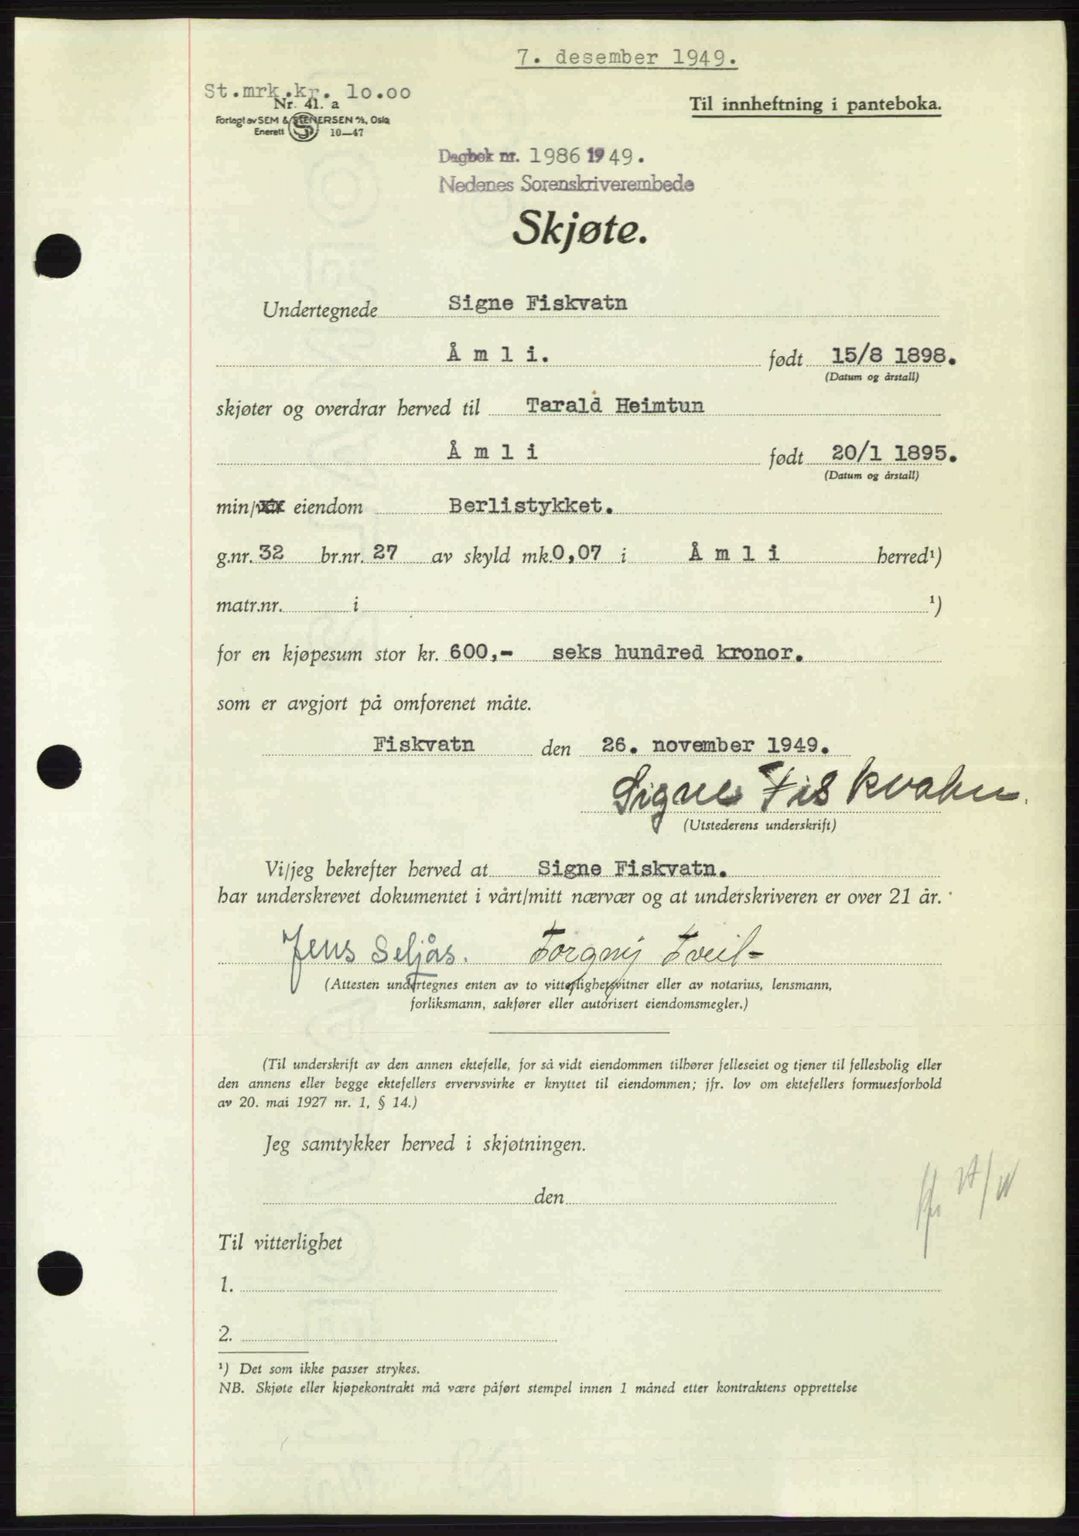 7. desember 1949.
St.mrk.kr. 10.00
Nr. 41. a
Forlagt av SEM & STENERSEN A/S, Oslo
Enerett S 10—47
Til innheftning i panteboka.
Dagbok nr. 1986 1949.
Nedenes Sorenskriverembede
Skjøte.
Undertegnede Signe Fiskvatn
Åmli. født 15/8 1898.
(Datum og årstall)
skjøter og overdrar herved til Tarald Heimtun
Åmli født 20/1 1895.
(Datum og årstall)
min/ eiendom Berlistykket.
g.nr. 32 br.nr. 27 av skyld mk.0,07 i Åmli herred¹)
matr.nr. i ¹)
for en kjøpesum stor kr. 600,- seks hundred kronor.
som er avgjort på omforenet måte.
Fiskvatn den 26. november 1949.
Signe Fiskvatn.
(Utstederens underskrift)
Vi/jeg bekrefter herved at Signe Fiskvatn.
har underskrevet dokumentet i vårt/mitt nærvær og at underskriveren er over 21 år.
Jens Seljås. Torgny Tveit
(Attesten undertegnes enten av to vitterlighetsvitner eller av notarius, lensmann,
forliksmann, sakfører eller autorisert eiendomsmegler.)
(Til underskrift av den annen ektefelle, for så vidt eiendommen tilhører felleseiet og tjener til fellesbolig eller
den annens eller begge ektefellers ervervsvirke er knyttet til eiendommen; jfr. lov om ektefellers formuesforhold
av 20. mai 1927 nr. 1, § 14.)
Jeg samtykker herved i skjøtningen.
den
Til vitterlighet
1.
2.
¹) Det som ikke passer strykes.
NB. Skjøte eller kjøpekontrakt må være påført stempel innen 1 måned etter kontraktens opprettelse